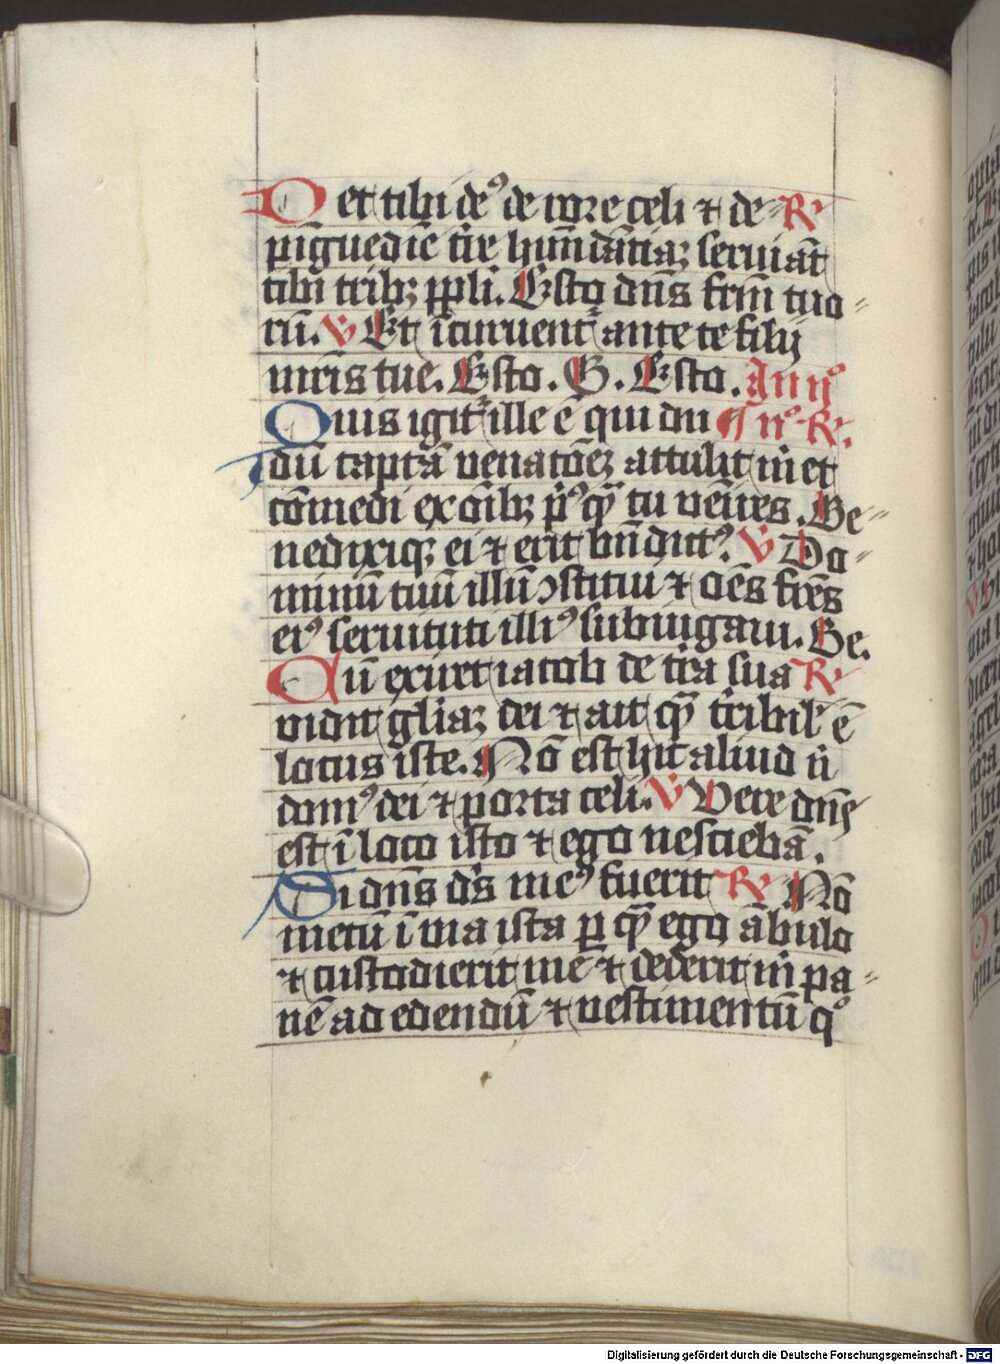 Det tibi deꝰ de rore celi ⁊ de R᷎
pīguedīe t̄re hūndātiaꝫ seruiāt
tibi tribꝫ ppl̄i. Esto dn̄s frm̄ tuo⸗
rū. V Et īcuruent᷑ ante te filij
mr̄is tue. Esto. G. Esto. In nꝰ
Quis igit᷑ ille ē qui du ¶ nꝰ R᷎.
dū captā venatōeꝫ attulit m̄ et
cōmedi ex oīb; p̄ꝰqꝫ̄ tu veīres. Be⸗
nedixiqꝫ ei ⁊ erit bn̄dictꝰ. V Do⸗
minū tuū illū ꝯstitui ⁊ oēs frēs
eiꝰ seruituti illiꝰ subiugaui. Be.
Cū exiret iacob de t̄ra sua R᷎
vidit gl̄iaꝫ dei ⁊ ait qꝫ̄ t̄ribil' ē
locus iste. Nō est hic aliud n̄
domꝰ dei ⁊ porta celi. V Vere dn̄s
est ī loco isto ⁊ ego nesciebā.
Si dn̄s ds̄ meꝰ fuerit R᷎ No
mecū ī via ista ꝑ qꝫ̄ ego ābulo
⁊ custodierit me ⁊ dederit m̄ pa⸗
nē ad edendū ⁊ vestimentū qͦ
Digitalisierung gefördert durch die Deutsche Forschungsgemeinschaft - DFG